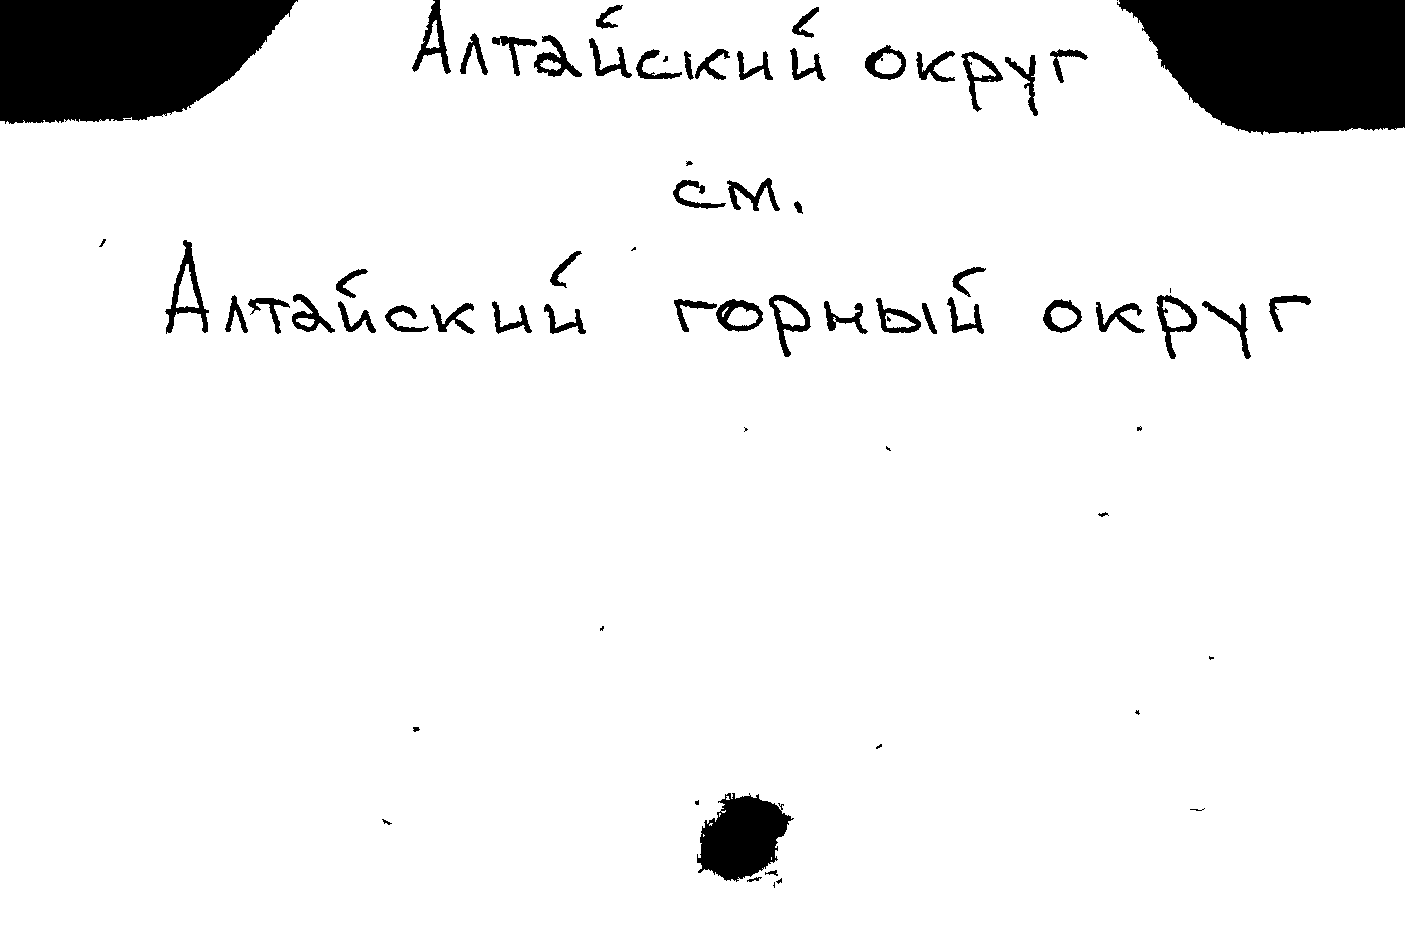 Алтайский округ
см.
Алтайский горный округ